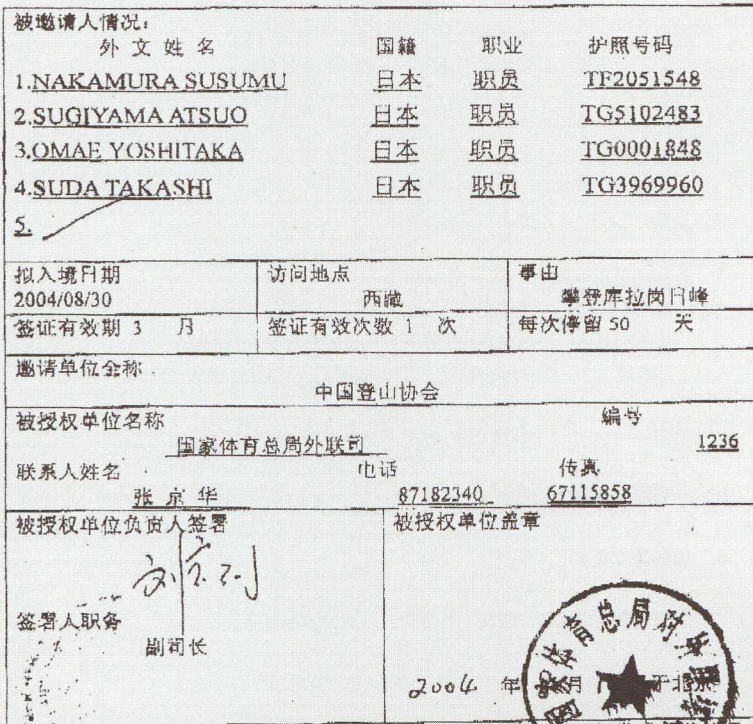 被邀请人情况:
外 文 姓 名 国籍 职业 护照号码
1.NAKAMURA SUSUMU 日本 职员 TF2051548
2.SUGIYAMA ATSUO 日本 职员 TG5102483
3.OMAE YOSHITAKA 日本 职员 TG0001848
4.SUDA TAKASHI 日本 职员 TG3969960
5.
拟入境日期 访问地点 事由
2004/08/30 西藏 攀登库拉岗日峰
签证有效期 3 月 签证有效次数 1 次 每次停留 50 天
邀请单位全称
中国登山协会
被授权单位名称 编号
国家体育总局外联司 1236
联系人姓名 电话 传真
张 京 华 87182340 67115858
被授权单位负责人签署 被授权单位盖章
签署人职务
副司长
体育总局对外
2004 年 月 于北京